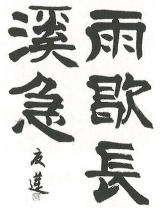 雨歇長
溪急
友蓮